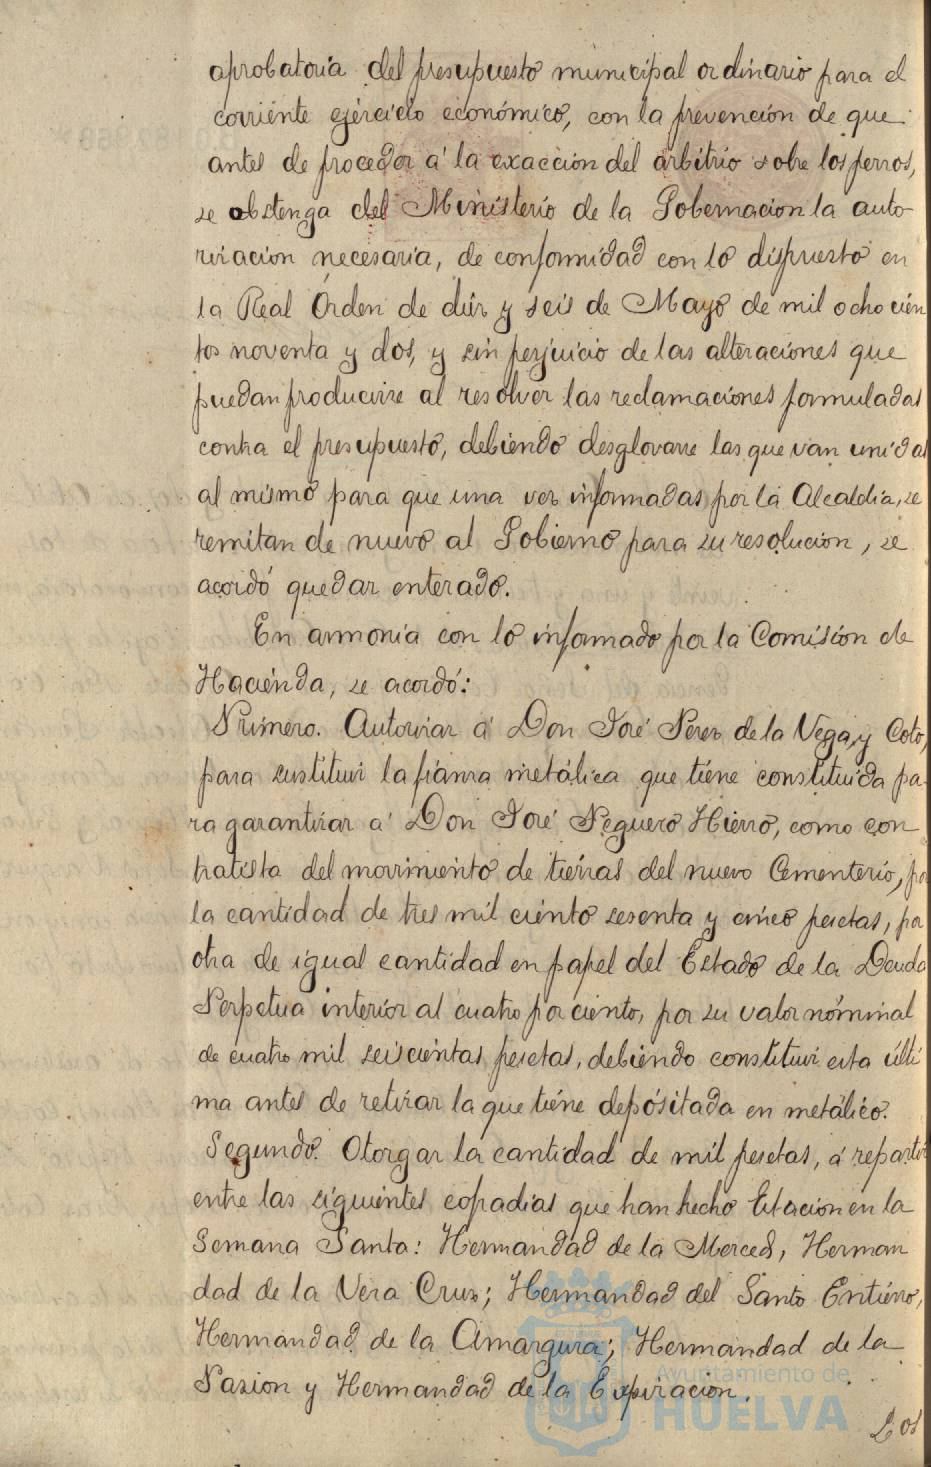 aprobatoria del presupuesto municipal ordinario para el
corriente ejercicio económico, con la prevención de que
antes de proceder á la exacción del arbitrio sobre los perros,
se obstenga del Ministerio de la Gobernacion la auto
rización necesaria, de conformidad con lo dispuesto en
la Real Órden de diéz y seis de Mayo de mil ochocien
tos noventa y dos, y sin perjuicio de las alteraciones que
puedan producirse al resolver las reclamaciones formuladas
contra el presupuesto, debiendo desglozarse las que van unidas
al mismo para que una vez informadas por la Alcaldia, se
remitan de nuevo al Gobierno para su resolucion, se
acordó quedar enterado.
En armonia con lo informado por la Comisión de
Hacienda, se acordó:
Primero. Autorizar á Don José Perez de la Vega y Coto,
para sustituir la fianza metálica que tiene constituida pa-
ra garantizar á Don José Peguero Hierro, como con
tratista del movimiento de tierras del nuevo Cementerio, por
la cantidad de tres mil ciento sesenta y cinco pesetas, por
otra de igual cantidad en papel del Estado de la Deuda
Perpetua interior al cuatro por ciento, por su valor nóminal
de cuatro mil seiscientas pesetas, debiendo constituir esta últi
ma antes de retirar la que tiene depósitada en metálico.
Segundo. Otorgar la cantidad de mil pesetas, á repartir
entre las siguientes cofradias que han hecho Estación en la
Semana Santa: Hermandad de la Merced, Herman
dad de la Vera Cruz; Hermandad del Santo Entierro,
Hermandad de la Amargura; Hermandad de la
Pasion y Hermandad de la Expiracion.
Los
Ayuntamiento de
HUELVA